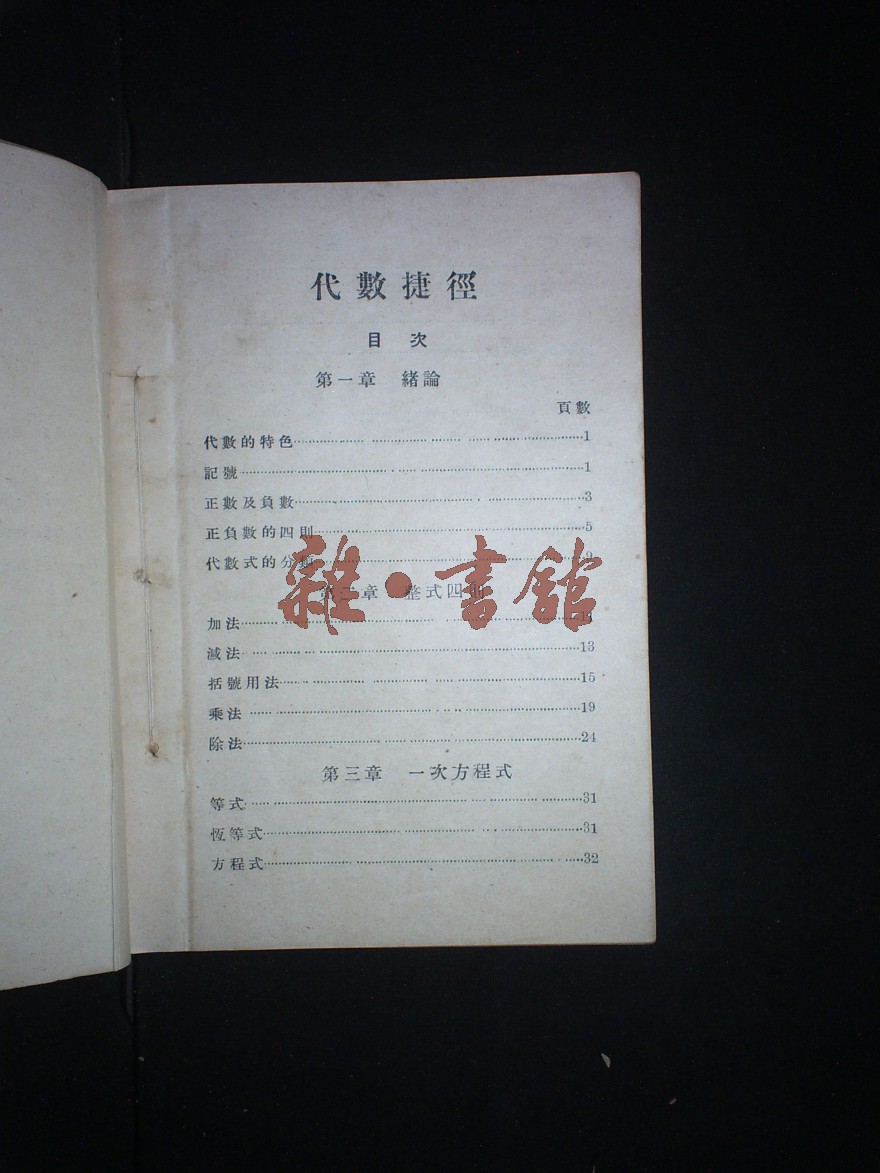 代數捷徑
目次
第一章 緒論
頁數
代數的特色 1
記號 1
正數及負數 3
正負數的四則 5
代數式的分類 9
雜·書館
第二章 整式四則
加法 11
減法 13
括號用法 15
乘法 19
除法 24
第三章 一次方程式
等式 31
恆等式 31
方程式 32